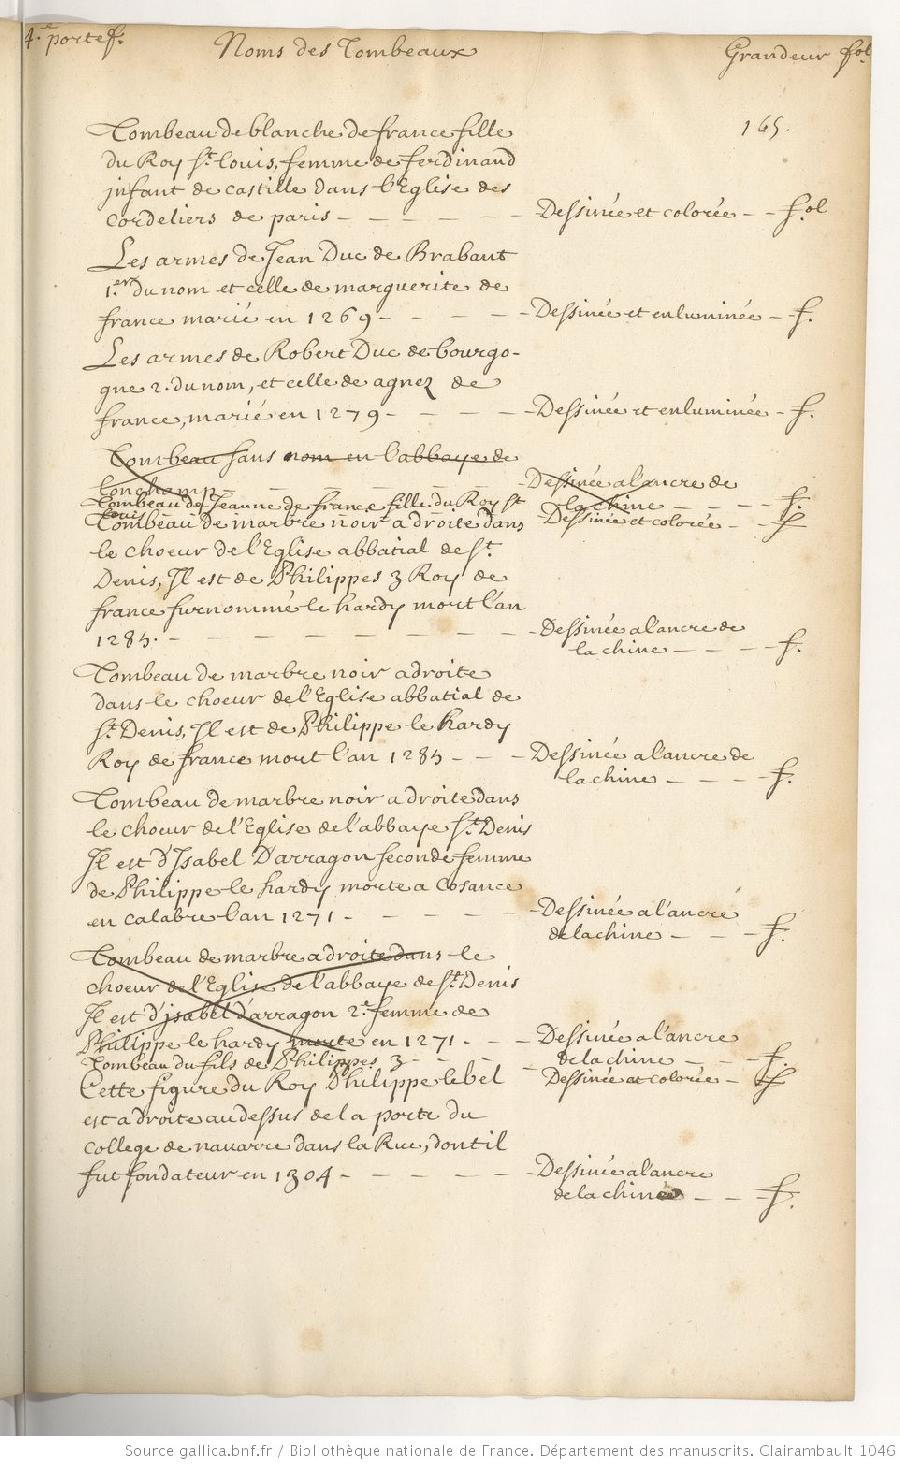 4.e portef. Noms des Tombeaux Grandeur fol.
165.
Tombeau de blanche de france fille
du Roy St. Louis, femme de ferdinand
jnfant de castille dans l'Eglise des
cordeliers de paris - - - - - Dessinée et colorée - - fol
Les armes de Jean Duc de Brabant
1.er du nom et celle de marguerite de
france marié en 1269 - - - - - Dessinée et enluminée - f.
Les armes de Robert Duc de bourgo-
gne 2. du nom, et celle de agnez de
france, marié en 1279 - - - - - Dessinée et enluminée - f.
Tombeau sans nom en l'abbaye de
Lonchamp - - - - - Dessinée a l'ancre de
la chine - - - f.
Tombeau de Jeanne de france fille du Roy St
Louis - Dessinée et colorée - - f
Tombeau de marbre noir a droite dans
le choeur de l'Eglise abbatial de St.
Denis, Il est de Philippes 3 Roy de
france surnommé le hardy mort l'an
1285. - - - - - - - Dessinée a l'ancre de
la chine - - - f.
Tombeau de marbre noir a droite
dans le choeur de l'Eglise abbatial de
St. Denis, Il est de Philippe le hardy
Roy de france mort l'an 1285 - - - Dessinée a l'ancre de
la chine - - - f.
Tombeau de marbre noir a droite dans
le choeur de l'Eglise de l'abbaye St. Denis
Il est d'Isabel D'arragon seconde femme
de Philippe le hardy morte a Cosance
en calabre l'an 1271 - - - - - Dessinée a l'ancre
de la chine - - - f.
Tombeau de marbre a droite dans le
choeur de l'Eglise de l'abbaye de St. Denis
Il est d'jsabel d'arragon 2.e femme de
Philippe le hardy morte en 1271 - - - Dessinée a l'ancre
de la chine - - - f.
Tombeau du fils de Philippes 3 - - - Dessinée et colorée - f
Cette figure du Roy Philippe le bel
est a droite au dessus de la porte du
college de navarre dans la Rue, dont il
fut fondateur en 1304 - - - - - Dessinée a l'ancre
de la chine - - - f.
Source gallica.bnf.fr / Bibliothèque nationale de France. Département des manuscrits. Clairambault 1046